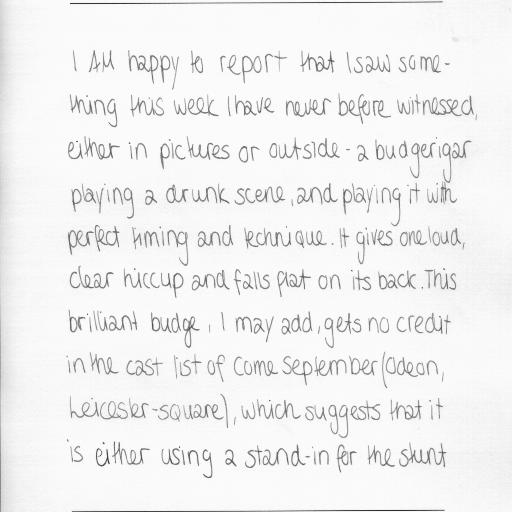 I AM happy to report that I saw some-
thing this week I have never before witnessed,
either in pictures or outside - a budgerigar
playing a drunk scene, and playing it with
perfect timing and technique. It gives one loud,
clear hiccup and falls flat on its back. This
brilliant budge, I may add, gets no credit
in the cast list of Come September (Odeon,
Leicester-square), which suggests that it
is either using a stand-in for the stunt